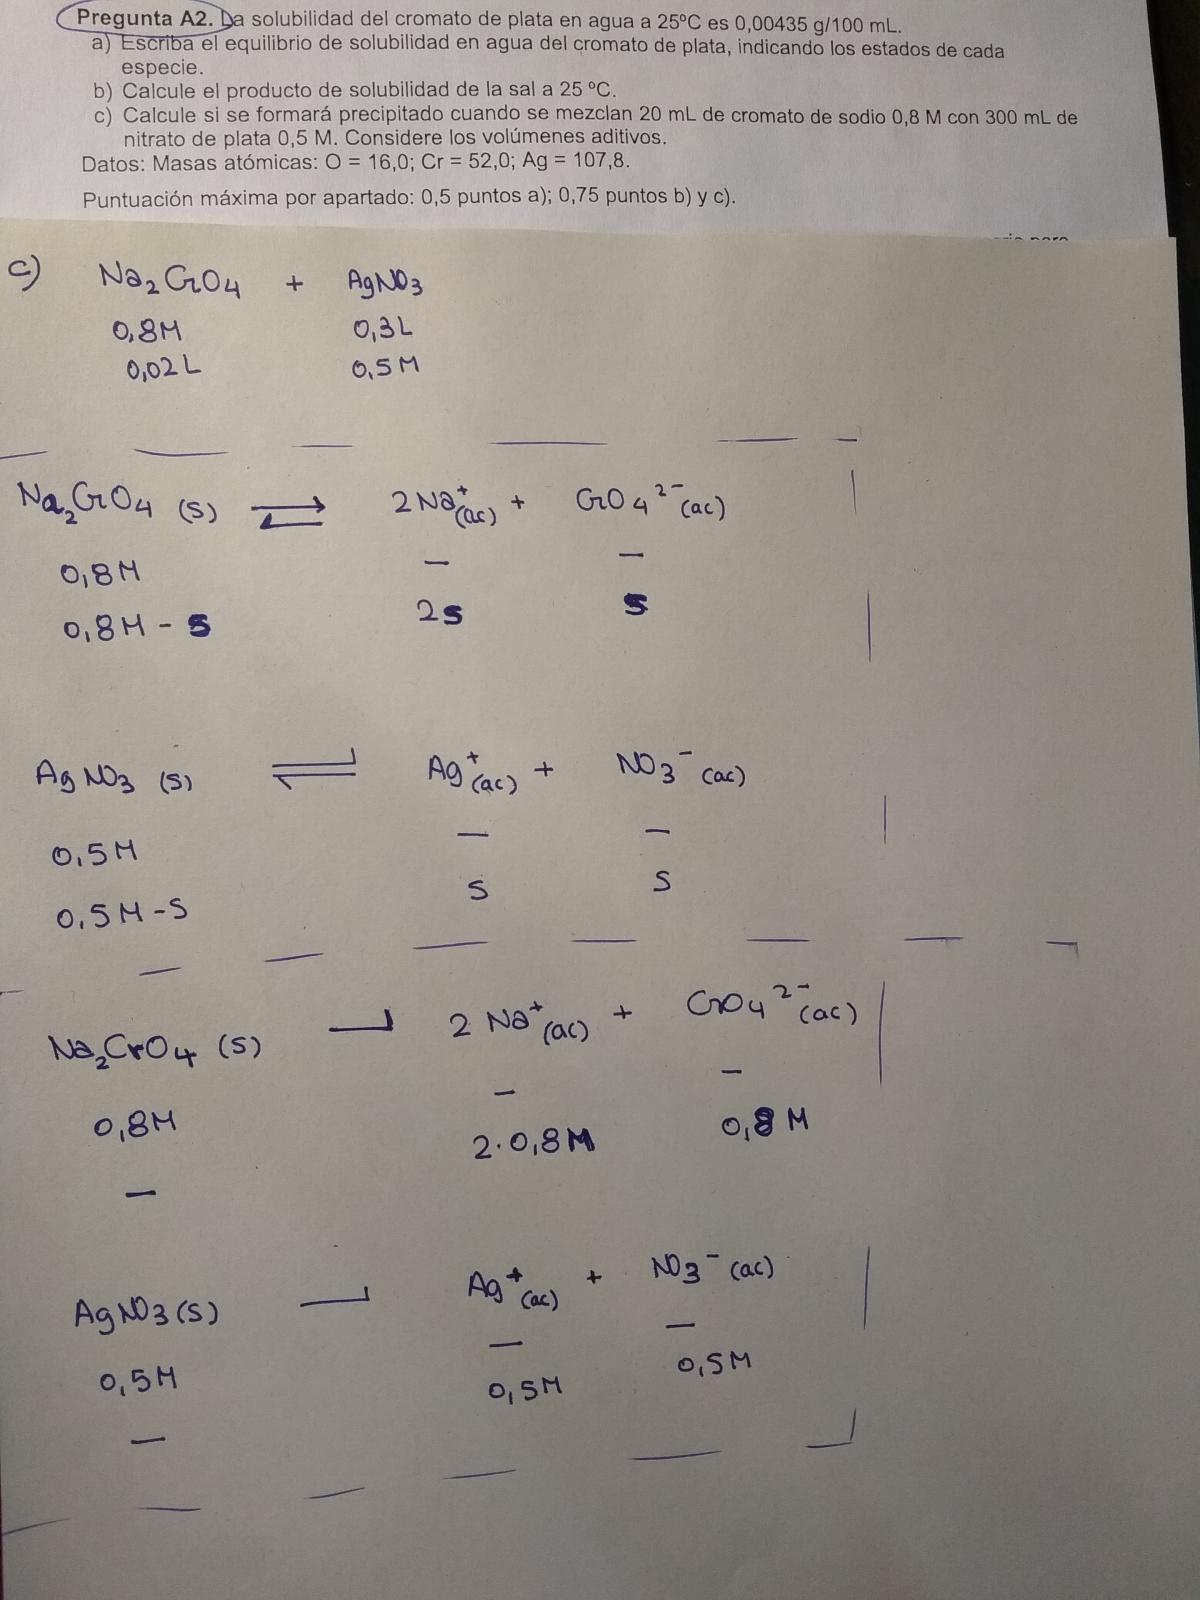 Pregunta A2. La solubilidad del cromato de plata en agua a 25ºC es 0,00435 g/100 mL.
a) Escriba el equilibrio de solubilidad en agua del cromato de plata, indicando los estados de cada
especie.
b) Calcule el producto de solubilidad de la sal a 25 ºC.
c) Calcule si se formará precipitado cuando se mezclan 20 mL de cromato de sodio 0,8 M con 300 mL de
nitrato de plata 0,5 M. Considere los volúmenes aditivos.
Datos: Masas atómicas: O = 16,0; Cr = 52,0; Ag = 107,8.
Puntuación máxima por apartado: 0,5 puntos a); 0,75 puntos b) y c).
c) Na₂CrO₄ + AgNO₃
0,8M 0,3L
0,02L 0,5M
Na₂CrO₄ (s) ⇌ 2Na⁺(ac) + CrO₄²⁻(ac)
0,8M — —
0,8M - s 2s s
AgNO₃ (s) ⇌ Ag⁺(ac) + NO₃⁻(ac)
0,5M — —
0,5M-s s s
Na₂CrO₄ (s) → 2 Na⁺(ac) + CrO₄²⁻(ac)
0,8M — —
— 2·0,8M 0,8M
AgNO₃(s) → Ag⁺(ac) + NO₃⁻(ac)
0,5M — —
— 0,5M 0,5M